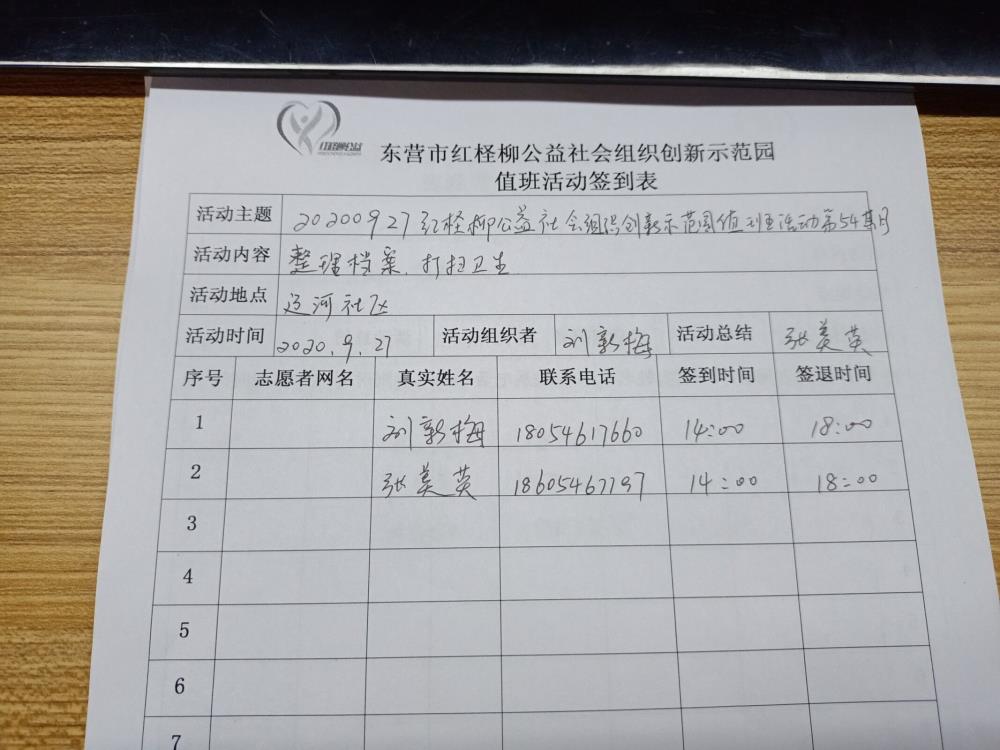 红柽柳公益
东营市红柽柳公益社会组织创新示范园
值班活动签到表
活动主题 20200927红柽柳公益社会组织创新示范园值班活动第54期
活动内容 整理档案、打扫卫生
活动地点 辽河社区
活动时间 2020.9.27 活动组织者 刘新梅 活动总结 张美英
序号 志愿者网名 真实姓名 联系电话 签到时间 签退时间
1 刘新梅 18054617660 14:00 18:00
2 张美英 18605467197 14:00 18:00
3
4
5
6
7